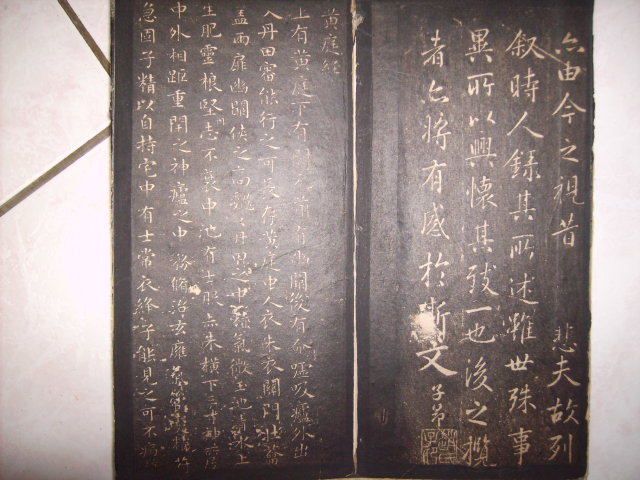 亦由今之視昔 悲夫故列
叙時人錄其所述雖世殊事
異所以興懷其致一也後之攬
者亦將有感於斯文
子弟
黃庭經
上有黃庭下有關元前有幽闕後有命噓吸廬外出
入丹田審能行之可長存黃庭中人衣朱衣關門壯籥
蓋兩扉幽闕俠之高巍巍丹田之中精氣微玉池清水上
生肥靈根堅志不衰中池有士服赤朱橫下三寸神所居
中外相距重閉之神廬之中務脩治玄廱氣管受精符
急固子精以自持宅中有士常衣絳子能見之可不病